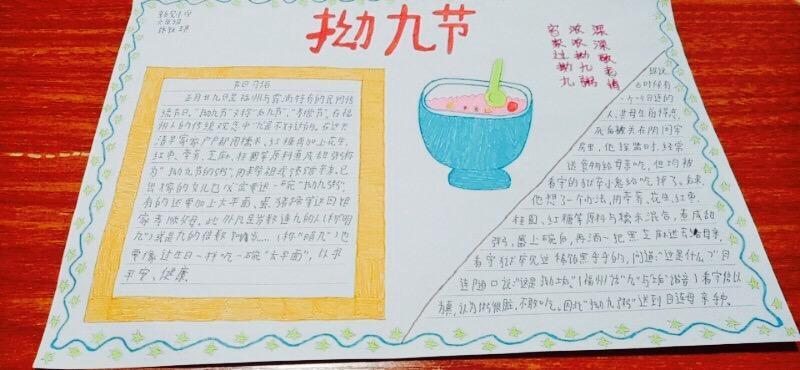 拗九节
家过拗九
浓浓拗九粥
深深敬老情
节日介绍
正月廿九日是福州与旁 特有的民间传
统节日,"拗九节"又称"后九节"、"孝顺节"。在福
州人的传统观念中"九"是不好的 。在这天
清早家家户户都用糯米、红糖再加上花生、
红枣、荸荠、芝麻、桂圆等原料煮成甜粥称
为"拗九节的粥",用来祭祖或馈赠亲友。已
出嫁的女儿也必定要送一碗"拗九粥",
有的还要加上太平面、蛋、猪蹄等送回娘
家孝顺父母。此外凡是岁数逢九的人(称"明
九")或是九的倍数 (称"暗九")也
要像过生日一样吃一碗"太平面",以求
平安、健康
据说
古时候有
一个叫目连的
人,其母生前
死后被关在阴间牢
房里。他探监时,经常
送食物给母亲吃,但均被
看守的狱卒小鬼给吃掉了。后来,
他想了一个办法,用荸荠、花生、红枣、
桂圆、红糖等原料与糯米混合,煮成甜
粥,盛上碗后,再洒一把黑芝麻送去给母亲,
看守狱卒见过 黑乎乎的,问道:"这是什么?"目
连随口说:"这是 垢。"(福州话"九"与"垢"谐音)看守信以
为真,认为粥很脏,不敢吃。因此"拗九粥"送到目连母亲手